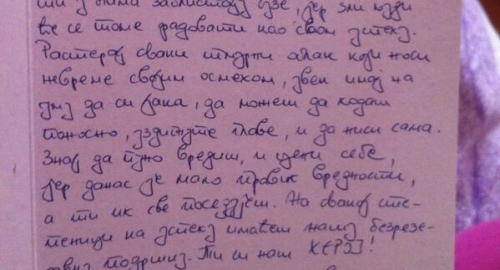 ти у заблистају сузе, јер зли људи
ће се томе радовати као свом успеху.
Растерај сваки тмурни облак који носи
невреме својим осмехом, увек имај на
уму да си јака, да можеш да ходаш
поносно, уздигнуте главе, и да ниси сама.
Знај да пуно вредиш, и цени себе,
јер данас је мало правих вредности,
а ти их све поседујеш. На свакој сте-
пеници на успеху имаћеш нашу безрезе-
рвну подршку. Ти си наш ХЕРОЈ!